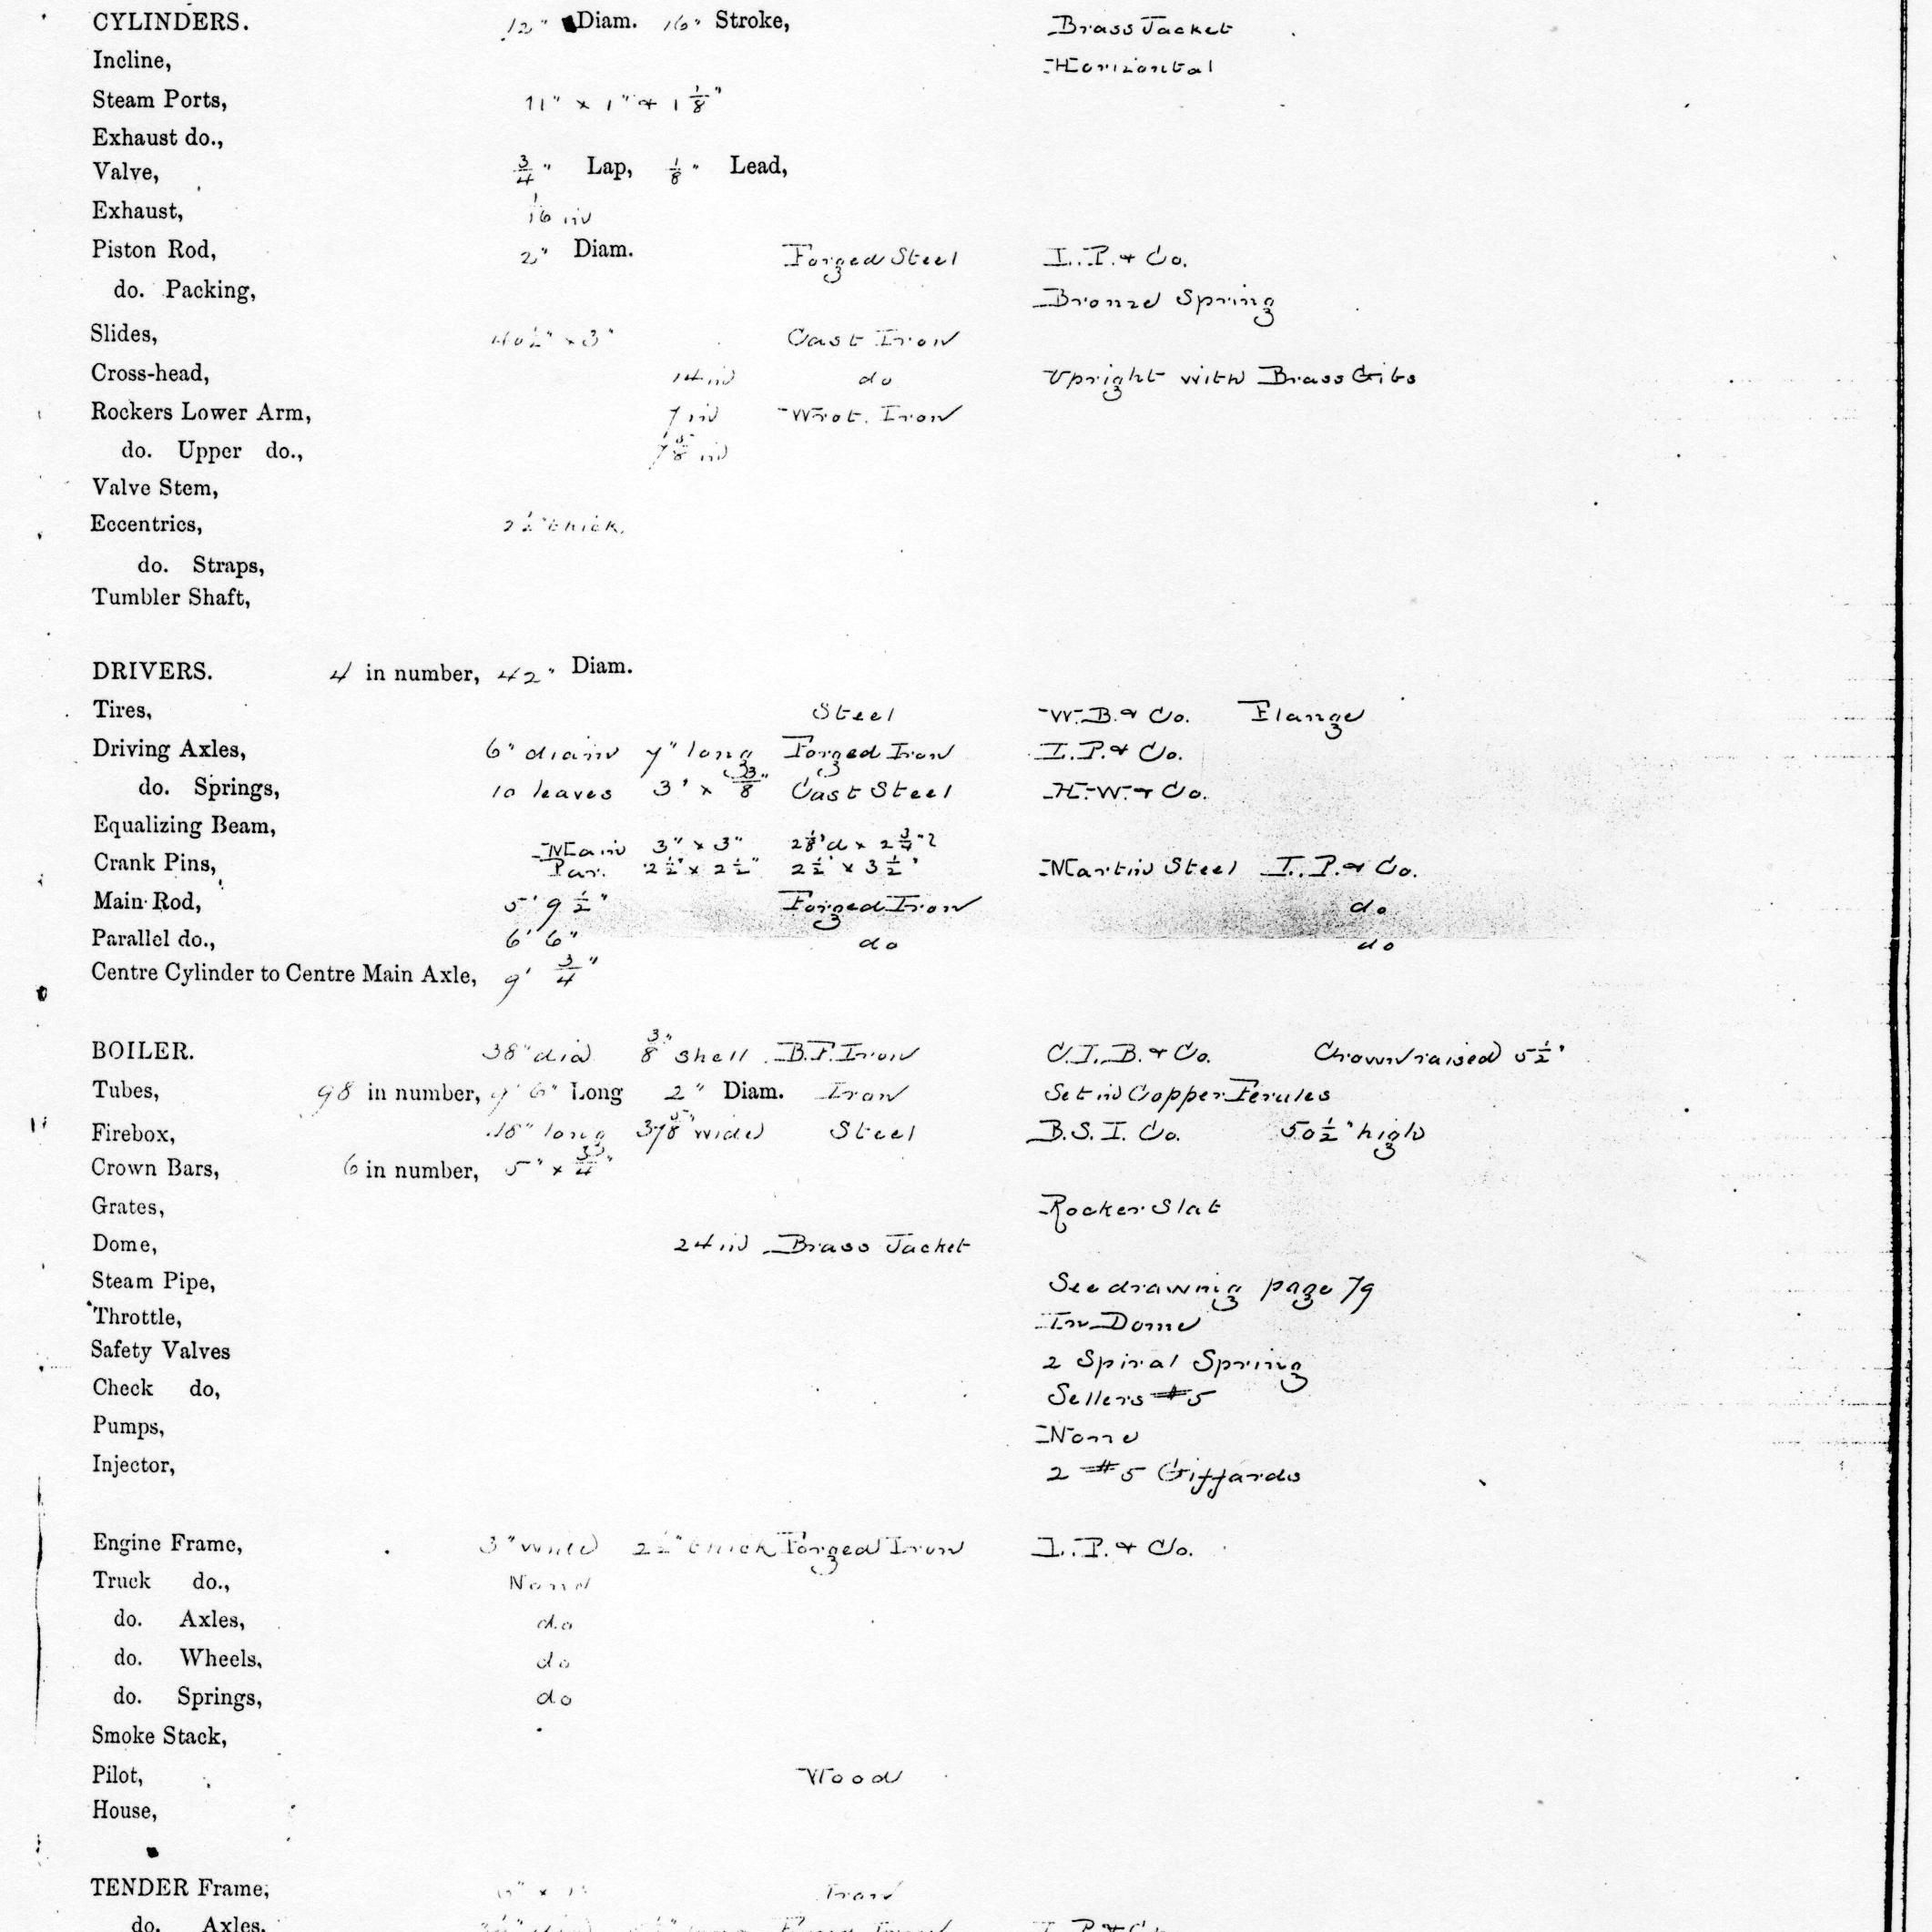 CYLINDERS. 12" Diam. 16" Stroke, Brass Jacket
Incline, Horizontal
Steam Ports, 11" x 1" & 1 1/8"
Exhaust do.,
Valve, 3/4" Lap, 1/8" Lead,
Exhaust, 1/16 in
Piston Rod, 2" Diam. Forged Steel I. P. & Co.
do. Packing, Bronze Spring
Slides, 40 1/2" x 3" Cast Iron
Cross-head, 14 in do Upright with Brass Gibs
Rockers Lower Arm, 7 in Wrot. Iron
do. Upper do., 7 5/8 in
Valve Stem,
Eccentrics, 2 1/2" thick.
do. Straps,
Tumbler Shaft,
DRIVERS. 4 in number, 42" Diam.
Tires, Steel W. B. & Co. Flange
Driving Axles, 6" diam 7" long Forged Iron I. P. & Co.
do. Springs, 10 leaves 3" x 3/8" Cast Steel H. W. & Co.
Equalizing Beam,
Crank Pins, Main 3" x 3" 2 1/8" d x 2 3/4"
Par. 2 1/2" x 2 1/2" 2 1/2" x 3 1/2" Martin Steel I. P. & Co.
Main Rod, 5' 9 1/2" Forged Iron do
Parallel do., 6' 6" do do
Centre Cylinder to Centre Main Axle, 9' 3/4"
BOILER. 38" dia 3/8" shell B. F. Iron C. I. B. & Co. Crown raised 5 1/2"
Tubes, 98 in number, 9' 6" Long 2" Diam. Iron Set in Copper Ferules
Firebox, long wide Steel B. S. I. Co. 50 1/2" high
Crown Bars, 6 in number, 5" x 3/4"
Grates, Rocker Slat
Dome, 24 in Brass Jacket
Steam Pipe, See drawing page 79
Throttle, In Dome
Safety Valves 2 Spiral Spring
Check do, Sellers #5
Pumps, None
Injector, 2 #5 Giffards
Engine Frame, 3" wide 2 1/2" thick Forged Iron I. P. & Co.
Truck do., None
do. Axles, do
do. Wheels, do
do. Springs, do
Smoke Stack,
Pilot, Wood
House,
TENDER Frame, Iron
do. Axles,